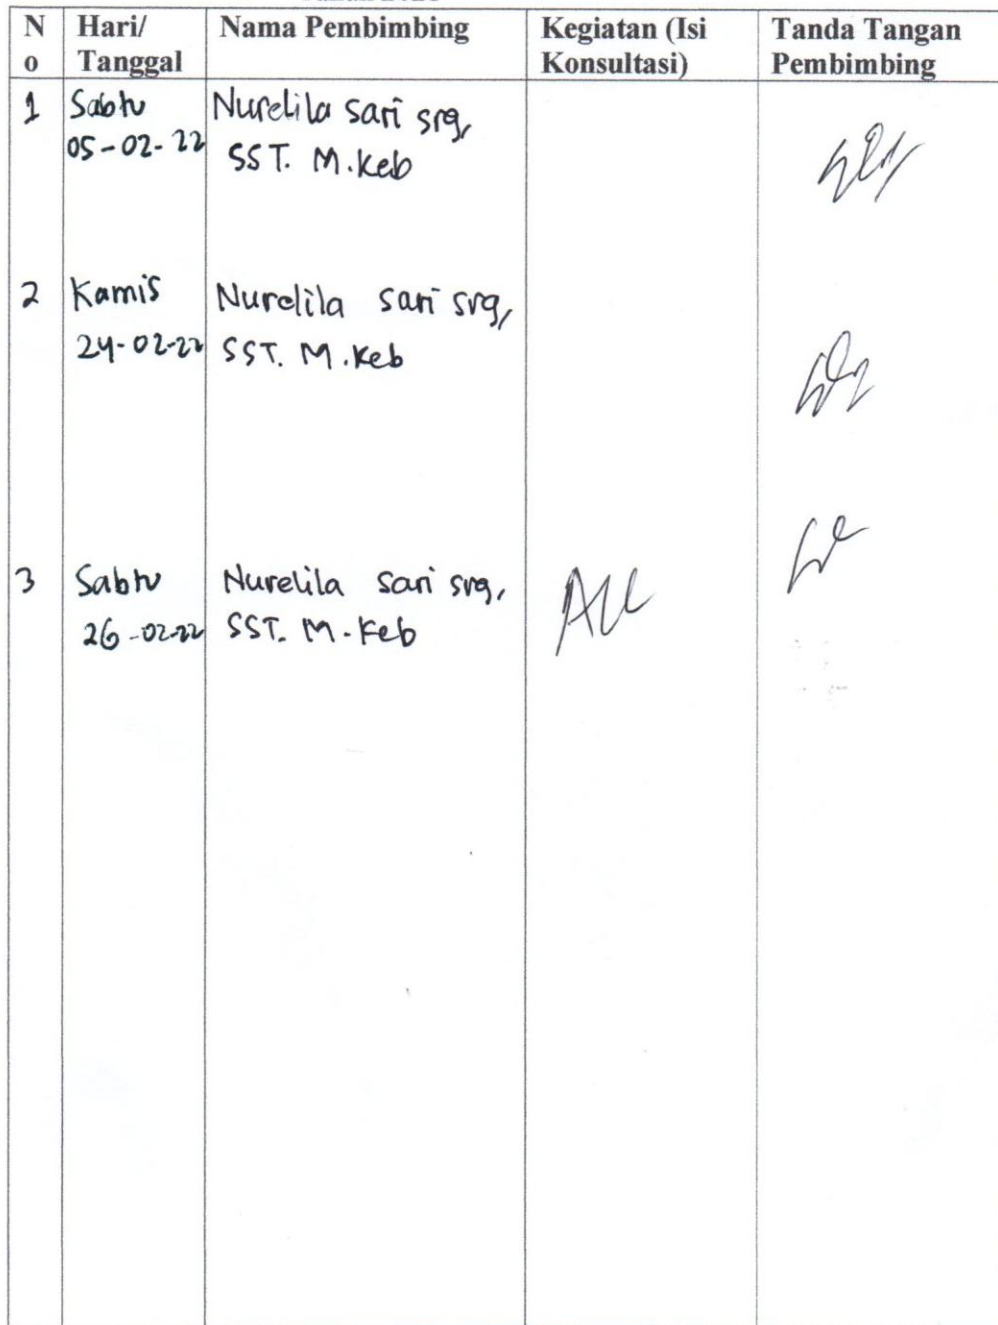 N
o
Hari/
Tanggal
Nama Pembimbing
Kegiatan (Isi
Konsultasi)
Tanda Tangan
Pembimbing
1
Sabtu
05-02-22
Nurelila sari srg,
SST. M.Keb
2
Kamis
24-02-22
Nurelila sari srg,
SST. M.Keb
3
Sabtu
26-02-22
Nurelila sari srg,
SST. M.Keb